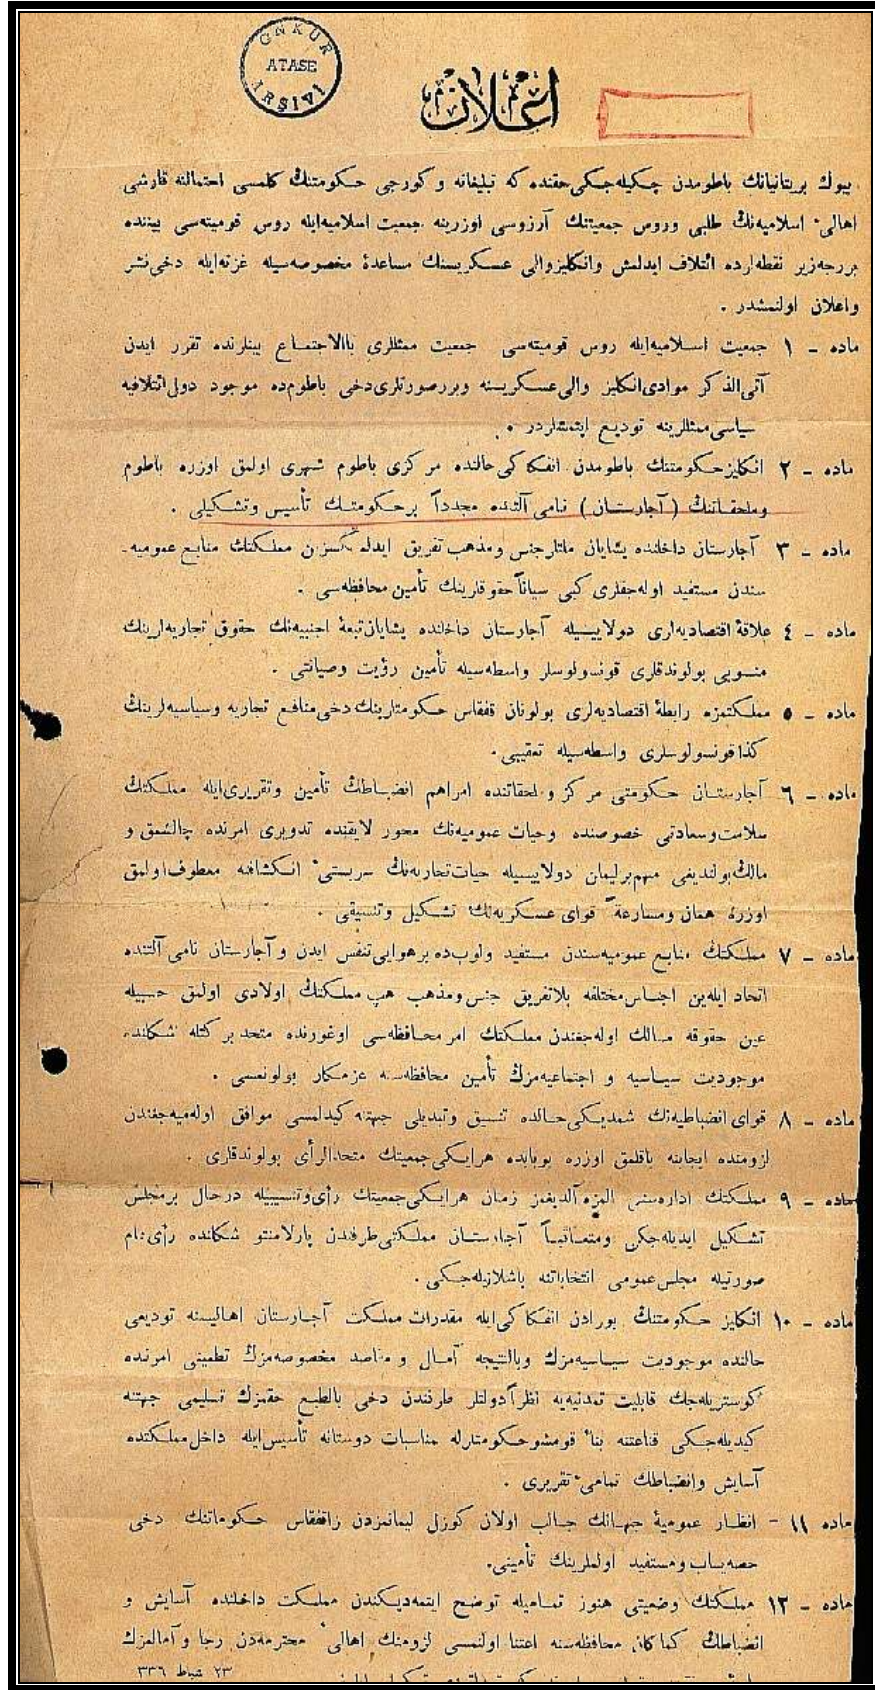 GNKUR
ATASE
ARŞİVİ
اعلان
بیوك بریتانیانك باطومدن چكیله‌جكی حقنده كه تبلیغانه و كورجی حكومتنك كلمسی احتمالنه قارشی
اهالیٔ اسلامیه‌نك طلبی وروس جمعیتنك آرزوسی اوزرینه جمعیت اسلامیه‌ایله روس قومیته‌سی بیننده
بررجه‌زیر نقطه‌لرده ائتلاف ایدلمش وانكلیزوالی عسكریسنك مساعدهٔ مخصوصه‌سیله غزته‌ایله دخی‌نشر
واعلان اولنمشدر .
ماده - ١ جمعیت اسلامیه‌ایله روس قومیته‌سی جمعیت ممثللری باالاجتماع بینلرنده تقرر ایدن
آتی‌الذكر موادی‌انكلیز والی‌عسكریسنه وبررصورتلری‌دخی باطوم‌ده موجود دول‌ائتلافیه
سیاسی‌ممثللرینه تودیع ایتمشلردر .
ماده - ٢ انكلیزحكومتنك باطومدن انفكاكی‌حالنده مركزی باطوم شهری اولمق اوزره باطوم
وملحقاتنك (آجارستان) نامی آلتنده مجدداً برحكومتك تأسیس وتشكیلی .
ماده - ٣ آجارستان داخلنده یشایان ملتلرجنس ومذهب تفریق ایدلمكسزین مملكتك منابع عمومیه-
سندن مستفید اوله‌جقلری كبی سیاناً حقوقلرینك تأمین محافظه‌سی .
ماده - ٤ علاقهٔ اقتصادیه‌لری دولاییسیله آجارستان داخلنده یشایان‌تبعهٔ اجنبیه‌نك حقوق تجاریه‌لرینك
منسوبی بولوندقلری قونسولوسلر واسطه‌سیله تأمین رؤیت وصیانتی .
ماده - ٥ مملكتمزه رابطهٔ اقتصادیه‌لری بولونان قفقاس حكومتلرینك‌دخی‌منافع تجاریه وسیاسیه‌لرینك
كذاقونسولوسلری واسطه‌سیله تعقیبی.
ماده - ٦ آجارستان حكومتی مركز وملحقاتنده امراهم انضباطك تأمین وتقریری‌ایله مملكتك
سلامت‌وسعادتی خصوصنده وحیات عمومیه‌نك محور لایقنده تدویری امرنده چالشمق و
مالك‌بولندیغی مهم‌برلیمان دولاییسیله حیات‌تجاریه‌نك سربستیٔ انكشافنه معطوف‌اولمق
اوزره همان ومسارعةً قوای عسكریه‌نك تشكیل وتنسیقی .
ماده - ٧ مملكتك منابع عمومیه‌سندن مستفید ولوب‌ده برهوایی‌تنفس ایدن و آجارستان نامی آلتنده
اتحاد ایله‌ین اجناس‌مختلفه بلاتفریق جنس‌ومذهب هپ مملكتك اولادی اولمق حسبیله
عین حقوقه مالك اوله‌جغندن مملكتك امر محافظه‌سی اوغورنده متحد بر كتله شكلنده
موجودیت سیاسیه و اجتماعیه‌مزك تأمین محافظه‌سنه عزمكار بولونمسی .
ماده - ٨ قوای انضباطیه‌نك شمدیكی‌حالده تنسیق وتبدیلی جهتنه كیدلمسی موافق اوله‌میه‌جغندن
لزومنده ایجابنه باقلمق اوزره بوبابده هرایكی‌جمعیتك متحدالرأی بولوندقلری .
ماده - ٩ مملكتك اداره‌سنی المزه آلدیغمز زمان هرایكی‌جمعیتك رأی‌وتنسیبیله درحال برمجلس
تشكیل ایدیله‌جكی ومتعاقباً آجارستان مملكتی‌طرفندن پارلامنتو شكلنده رأی‌عام
صورتیله مجلس‌عمومی انتخاباتنه باشلانیله‌جكی .
ماده - ١٠ انكلیز حكومتنك بورادن انفكاكی‌ایله مقدرات مملكت آجارستان اهالیسنه تودیعی
حالنده موجودیت سیاسیه‌مزك وبالنتیجه آمال و مقاصد مخصوصه‌مزك تطمینی امرنده
كوستریله‌جك قابلیت تمدنیه‌یه نظراًدولتلر طرفندن دخی بالطبع حقمزك تسلیمی جهتنه
كیدیله‌جكی قناعتنه بناءً قومشوحكومتلرله مناسبات دوستانه تأسیس‌ایله داخل‌مملكتده
آسایش وانضباطك تمامیٔ تقریری .
ماده ١١ - انظار عمومیهٔ جهانك جالب اولان كوزل لیمانمزدن قفقاس حكوماتنك دخی
حصه‌یاب‌ومستفید اولملرینك تأمینی.
ماده - ١٢ مملكتك وضعیتی هنوز تمامیله توضح ایتمه‌دیكندن مملكت داخلنده آسایش و
انضباطك كماكان محافظه‌سنه اعتنا اولنمسی لزومنك اهالیٔ محترمه‌دن رجا و آمالمزك
٢٣ شباط ٣٣٦